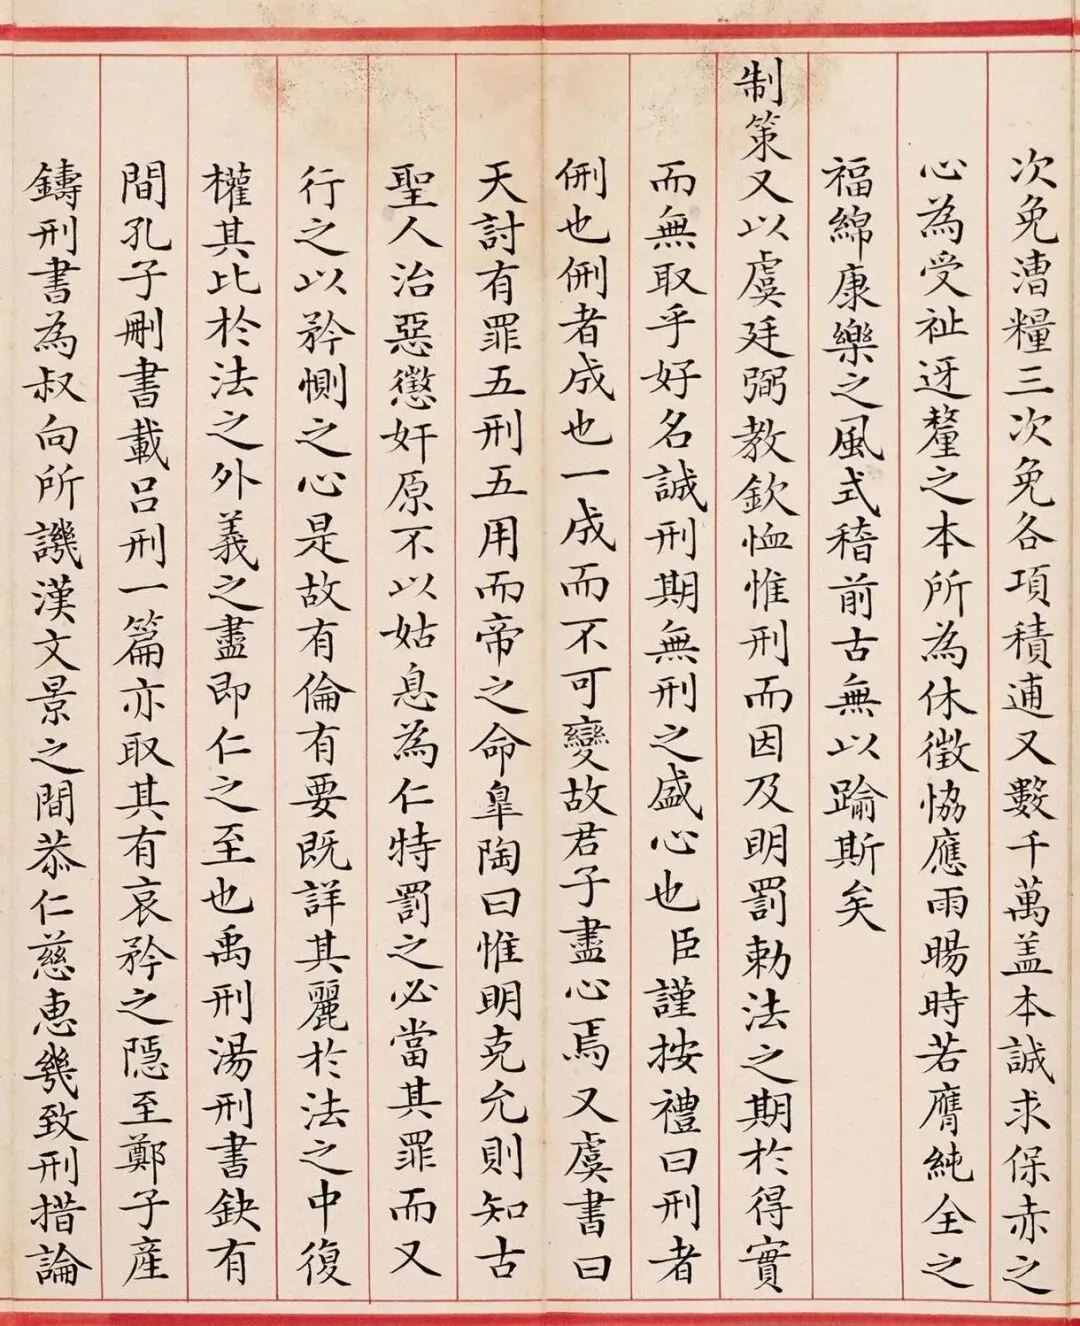 次免漕糧三次免各項積逋又數千萬盖本誠求保赤之
心為受祉迓釐之本所為休徵恊應雨暘時若膺純全之
福綿康樂之風式稽前古無以踰斯矣
制策又以虞廷弼教欽恤惟刑而因及明罰勅法之期於得實
而無取乎好名誠刑期無刑之盛心也臣謹按禮曰刑者
侀也侀者成也一成而不可變故君子盡心焉又虞書曰
天討有罪五刑五用而帝之命臯陶曰惟明克允則知古
聖人治惡懲奸原不以姑息為仁特罰之必當其罪而又
行之以矜惻之心是故有倫有要既詳其麗於法之中復
權其比於法之外義之盡即仁之至也禹刑湯刑書缺有
間孔子刪書載呂刑一篇亦取其有哀矜之隱至鄭子產
鑄刑書為叔向所譏漢文景之間恭仁慈恵幾致刑措論